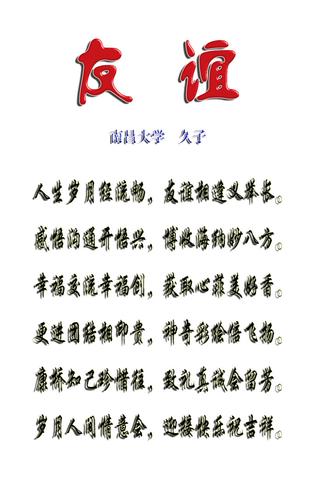 友 谊
南昌大学 久予
人生岁月经流畅，友谊相连义举长。
感悟沟通开悟兴，博收海纳妙八方。
幸福交流幸福创，获取心菲美好香。
更进团结相印贵，神奇彩绘悟飞扬。
康桥知己珍惜往，致礼真诚会留芳。
岁月人间情意会，迎接快乐祝吉祥。